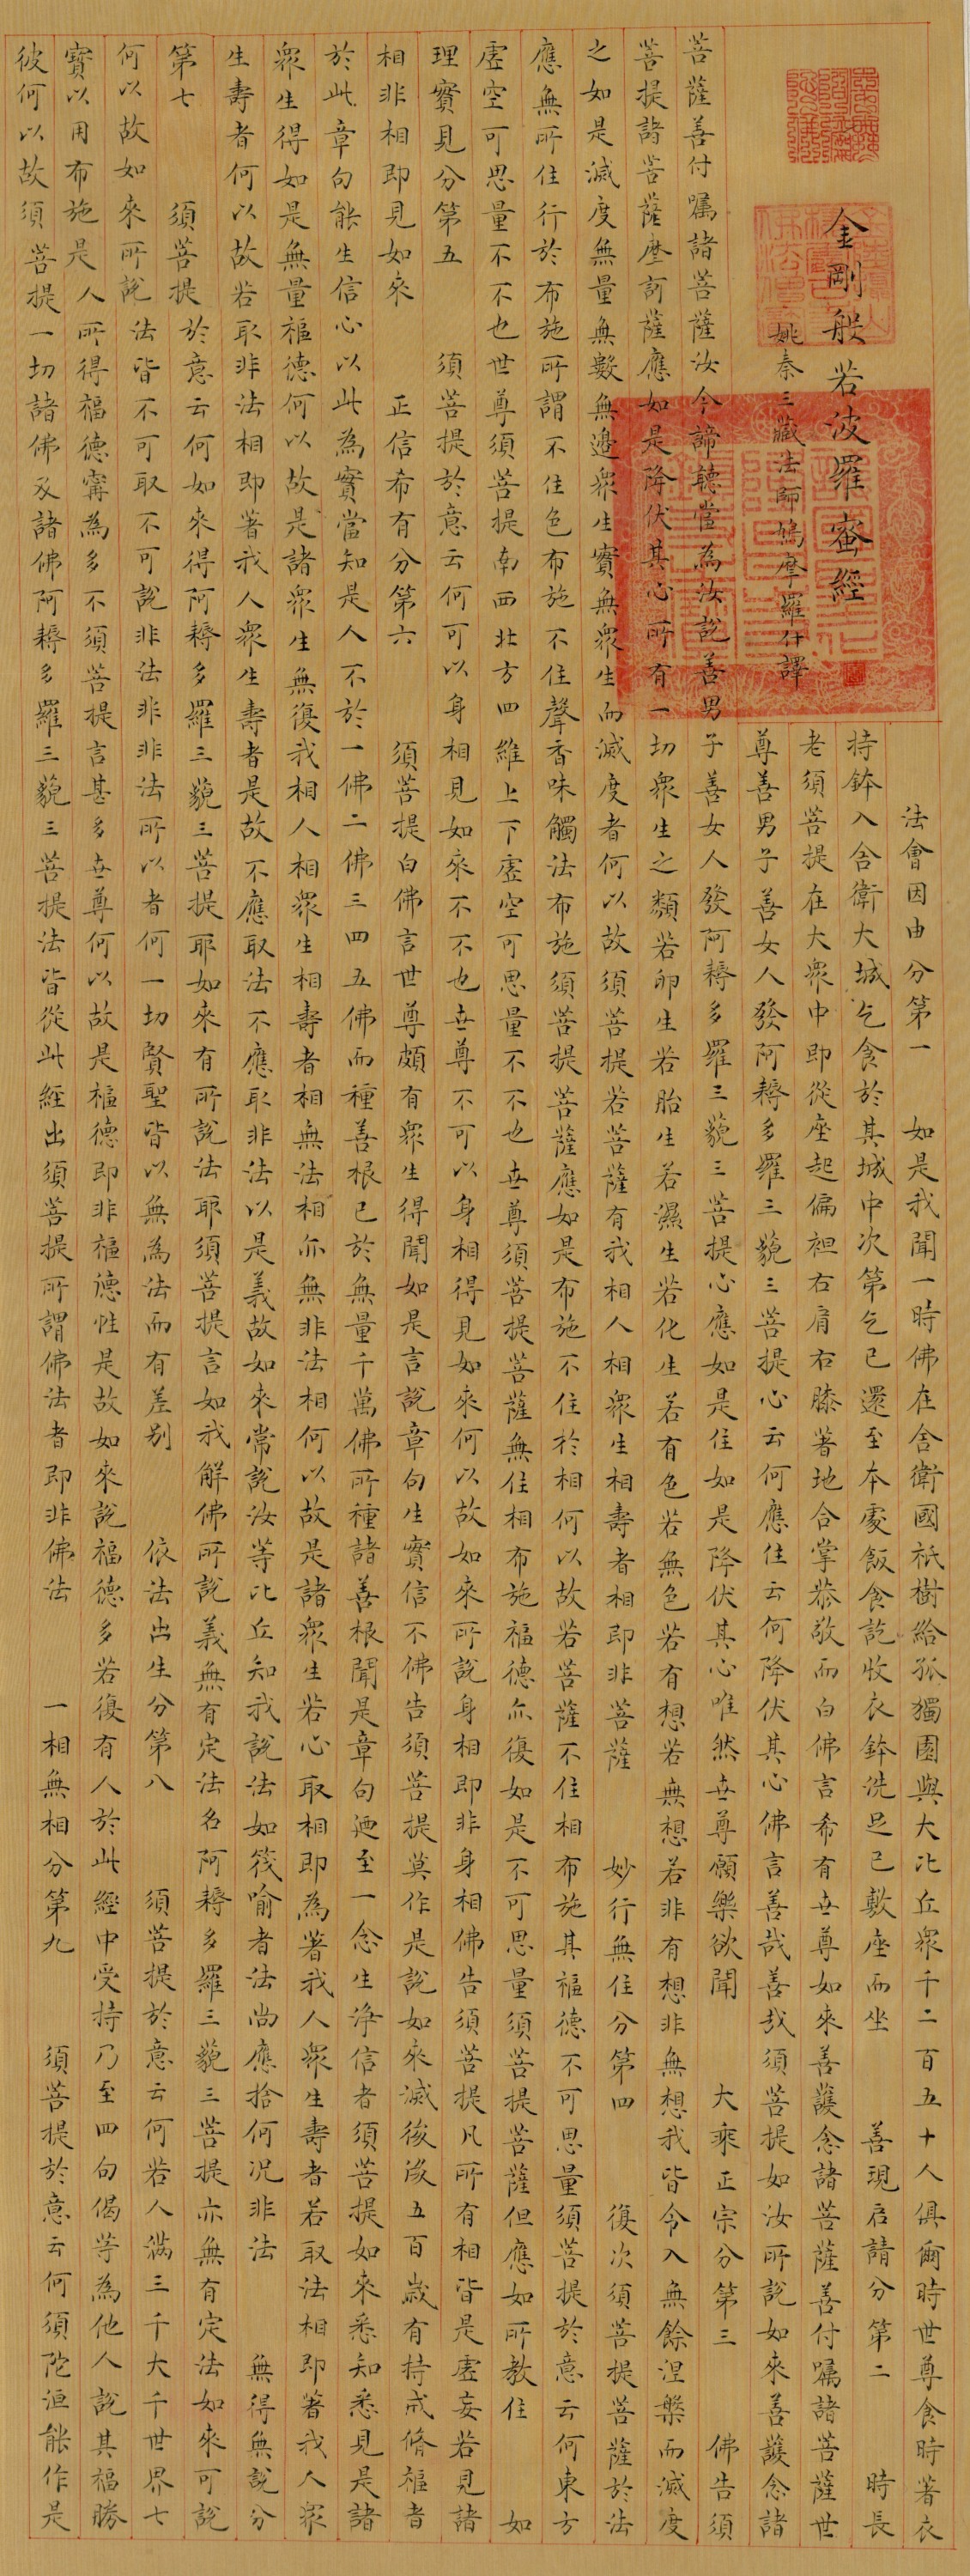 金剛般若波羅蜜經
姚秦三藏法師鳩摩羅什譯
法會因由分第一　如是我聞一時佛在舍衛國祇樹給孤獨園與大比丘眾千二百五十人俱爾時世尊食時著衣
持鉢入舍衛大城乞食於其城中次第乞已還至本處飯食訖收衣鉢洗足已敷座而坐　善現启請分第二　時長
老須菩提在大眾中即從座起偏袒右肩右膝著地合掌恭敬而白佛言希有世尊如來善護念諸菩薩善付囑諸菩薩世
尊善男子善女人發阿耨多羅三藐三菩提心云何應住云何降伏其心佛言善哉善哉須菩提如汝所說如來善護念諸
菩薩善付囑諸菩薩汝今諦聽當為汝說善男子善女人發阿耨多羅三藐三菩提心應如是住如是降伏其心唯然世尊願樂欲聞　大乘正宗分第三　佛告須
菩提諸菩薩摩訶薩應如是降伏其心所有一切眾生之類若卵生若胎生若濕生若化生若有色若無色若有想若無想若非有想非無想我皆令入無餘涅槃而滅度
之如是滅度無量無數無邊眾生實無眾生而滅度者何以故須菩提若菩薩有我相人相眾生相壽者相即非菩薩　妙行無住分第四　復次須菩提菩薩於法
應無所住行於布施所謂不住色布施不住聲香味觸法布施須菩提菩薩應如是布施不住於相何以故若菩薩不住相布施其福德不可思量須菩提於意云何東方
虛空可思量不不也世尊須菩提南西北方四維上下虛空可思量不不也世尊須菩提菩薩無住相布施福德亦復如是不可思量須菩提菩薩但應如所教住　如
理實見分第五　須菩提於意云何可以身相見如來不不也世尊不可以身相得見如來何以故如來所說身相即非身相佛告須菩提凡所有相皆是虛妄若見諸
相非相即見如來　正信希有分第六　須菩提白佛言世尊頗有眾生得聞如是言說章句生實信不佛告須菩提莫作是說如來滅後後五百歲有持戒脩福者
於此章句能生信心以此為實當知是人不於一佛二佛三四五佛而種善根已於無量千萬佛所種諸善根聞是章句迺至一念生淨信者須菩提如來悉知悉見是諸
眾生得如是無量福德何以故是諸眾生無復我相人相眾生相壽者相無法相亦無非法相何以故是諸眾生若心取相即為著我人眾生壽者若取法相即著我人眾
生壽者何以故若取非法相即著我人眾生壽者是故不應取法不應取非法以是義故如來常說汝等比丘知我說法如筏喻者法尚應捨何況非法　無得無說分
第七　須菩提於意云何如來得阿耨多羅三藐三菩提耶如來有所說法耶須菩提言如我解佛所說義無有定法名阿耨多羅三藐三菩提亦無有定法如來可說
何以故如來所說法皆不可取不可說非法非非法所以者何一切賢聖皆以無為法而有差別　依法出生分第八　須菩提於意云何若人滿三千大千世界七
寶以用布施是人所得福德寧為多不須菩提言甚多世尊何以故是福德即非福德性是故如來說福德多若復有人於此經中受持乃至四句偈等為他人說其福勝
彼何以故須菩提一切諸佛及諸佛阿耨多羅三藐三菩提法皆從此經出須菩提所謂佛法者即非佛法　一相無相分第九　須菩提於意云何須陀洹能作是